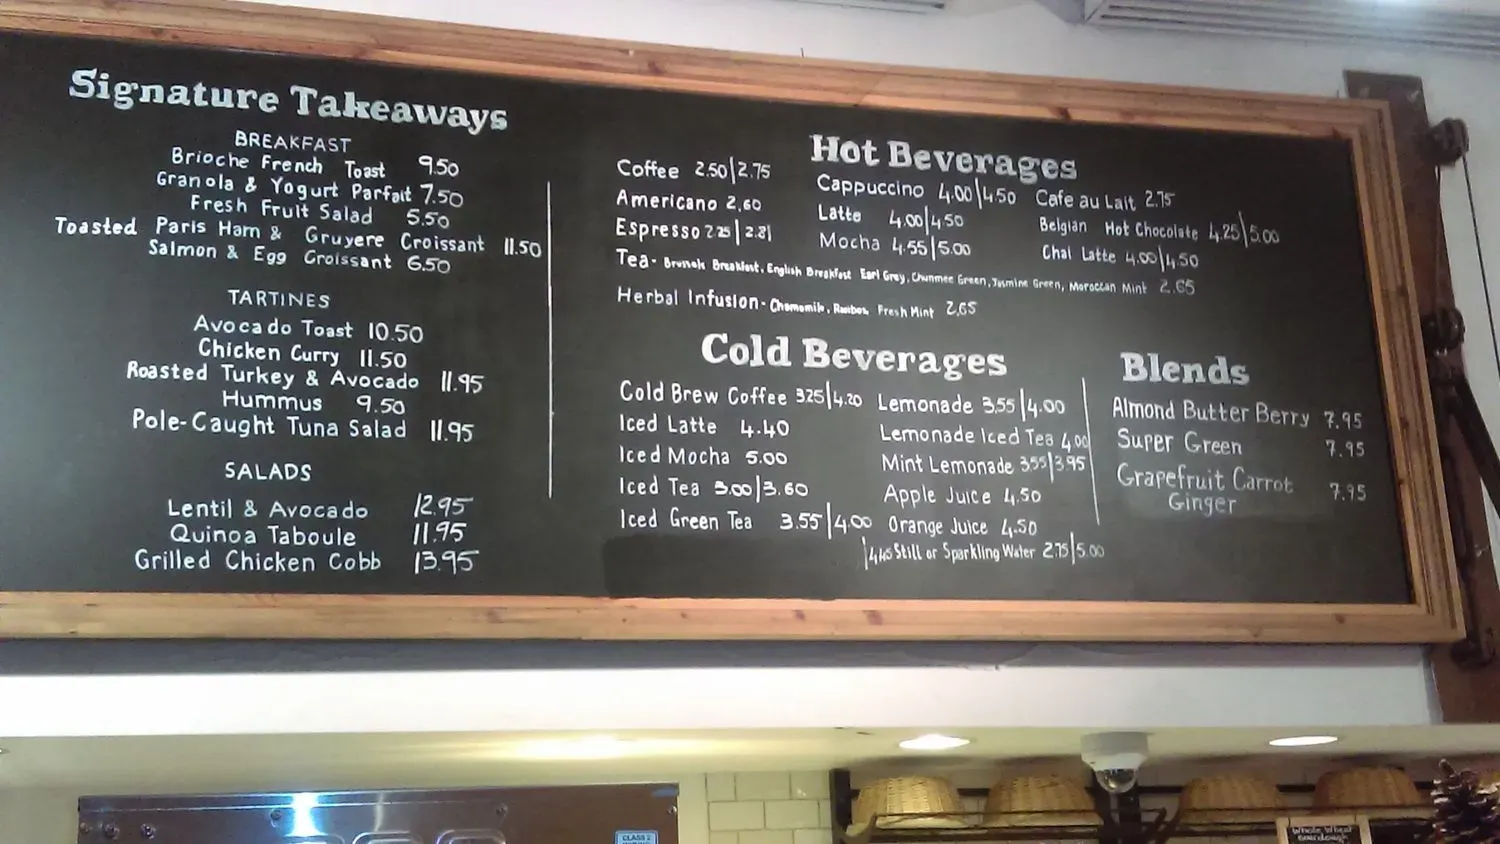 Signature Takeaways
BREAKFAST
Brioche French Toast 9.50
Granola & Yogurt Parfait 7.50
Fresh Fruit Salad 5.50
Toasted Paris Ham & Gruyere Croissant 11.50
Salmon & Egg Croissant 6.50
TARTINES
Avocado Toast 10.50
Chicken Curry 11.50
Roasted Turkey & Avocado 11.95
Hummus 9.50
Pole-Caught Tuna Salad 11.95
SALADS
Lentil & Avocado 12.95
Quinoa Taboule 11.95
Grilled Chicken Cobb 13.95
Hot Beverages
Coffee 2.50|2.75
Americano 2.60
Espresso 2.25|2.81
Cappuccino 4.00|4.50
Latte 4.00|4.50
Mocha 4.55|5.00
Cafe au Lait 2.75
Belgian Hot Chocolate 4.25|5.00
Chai Latte 4.00|4.50
Tea- Brunch Breakfast, English Breakfast Earl Grey, Chunmee Green, Jasmine Green, Moroccan Mint 2.65
Herbal Infusion- Chamomile, Rooibos, Fresh Mint 2.65
Cold Beverages
Cold Brew Coffee 3.25|4.20
Iced Latte 4.40
Iced Mocha 5.00
Iced Tea 3.00|3.60
Iced Green Tea 3.55|4.00
Lemonade 3.55|4.00
Lemonade Iced Tea 4.00
Mint Lemonade 3.55|3.95
Apple Juice 4.50
Orange Juice 4.50
|4.45 Still or Sparkling Water 2.75|5.00
Blends
Almond Butter Berry 7.95
Super Green 7.95
Grapefruit Carrot 7.95
Ginger
CLASS 2
Whole Wheat
Sourdough